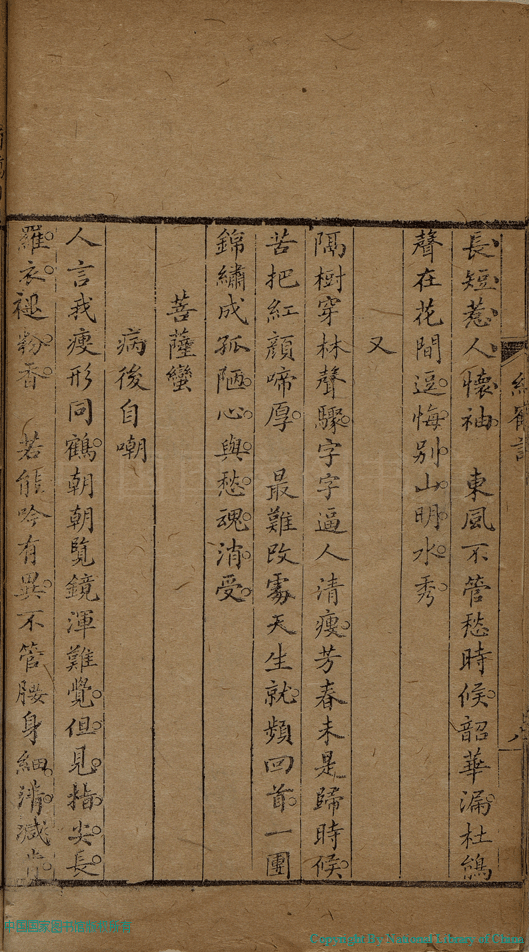 長短惹人懷袖　東風不管愁時候韶華漏杜鵑
聲在花間逗悔別山明水秀
又
隔樹穿林聲驟字字逼人清瘦芳春未是歸時候
苦把紅顏啼厚　最難改處天生就頻回首一團
錦繡成孤陋心與愁魂消受
菩薩蠻
病後自嘲
人言我瘦形同鶴朝朝覽鏡渾難覺但見指尖長
羅衣褪粉香　若能吟有異不管腰身細清減肯
八
Copyright By National Library of China